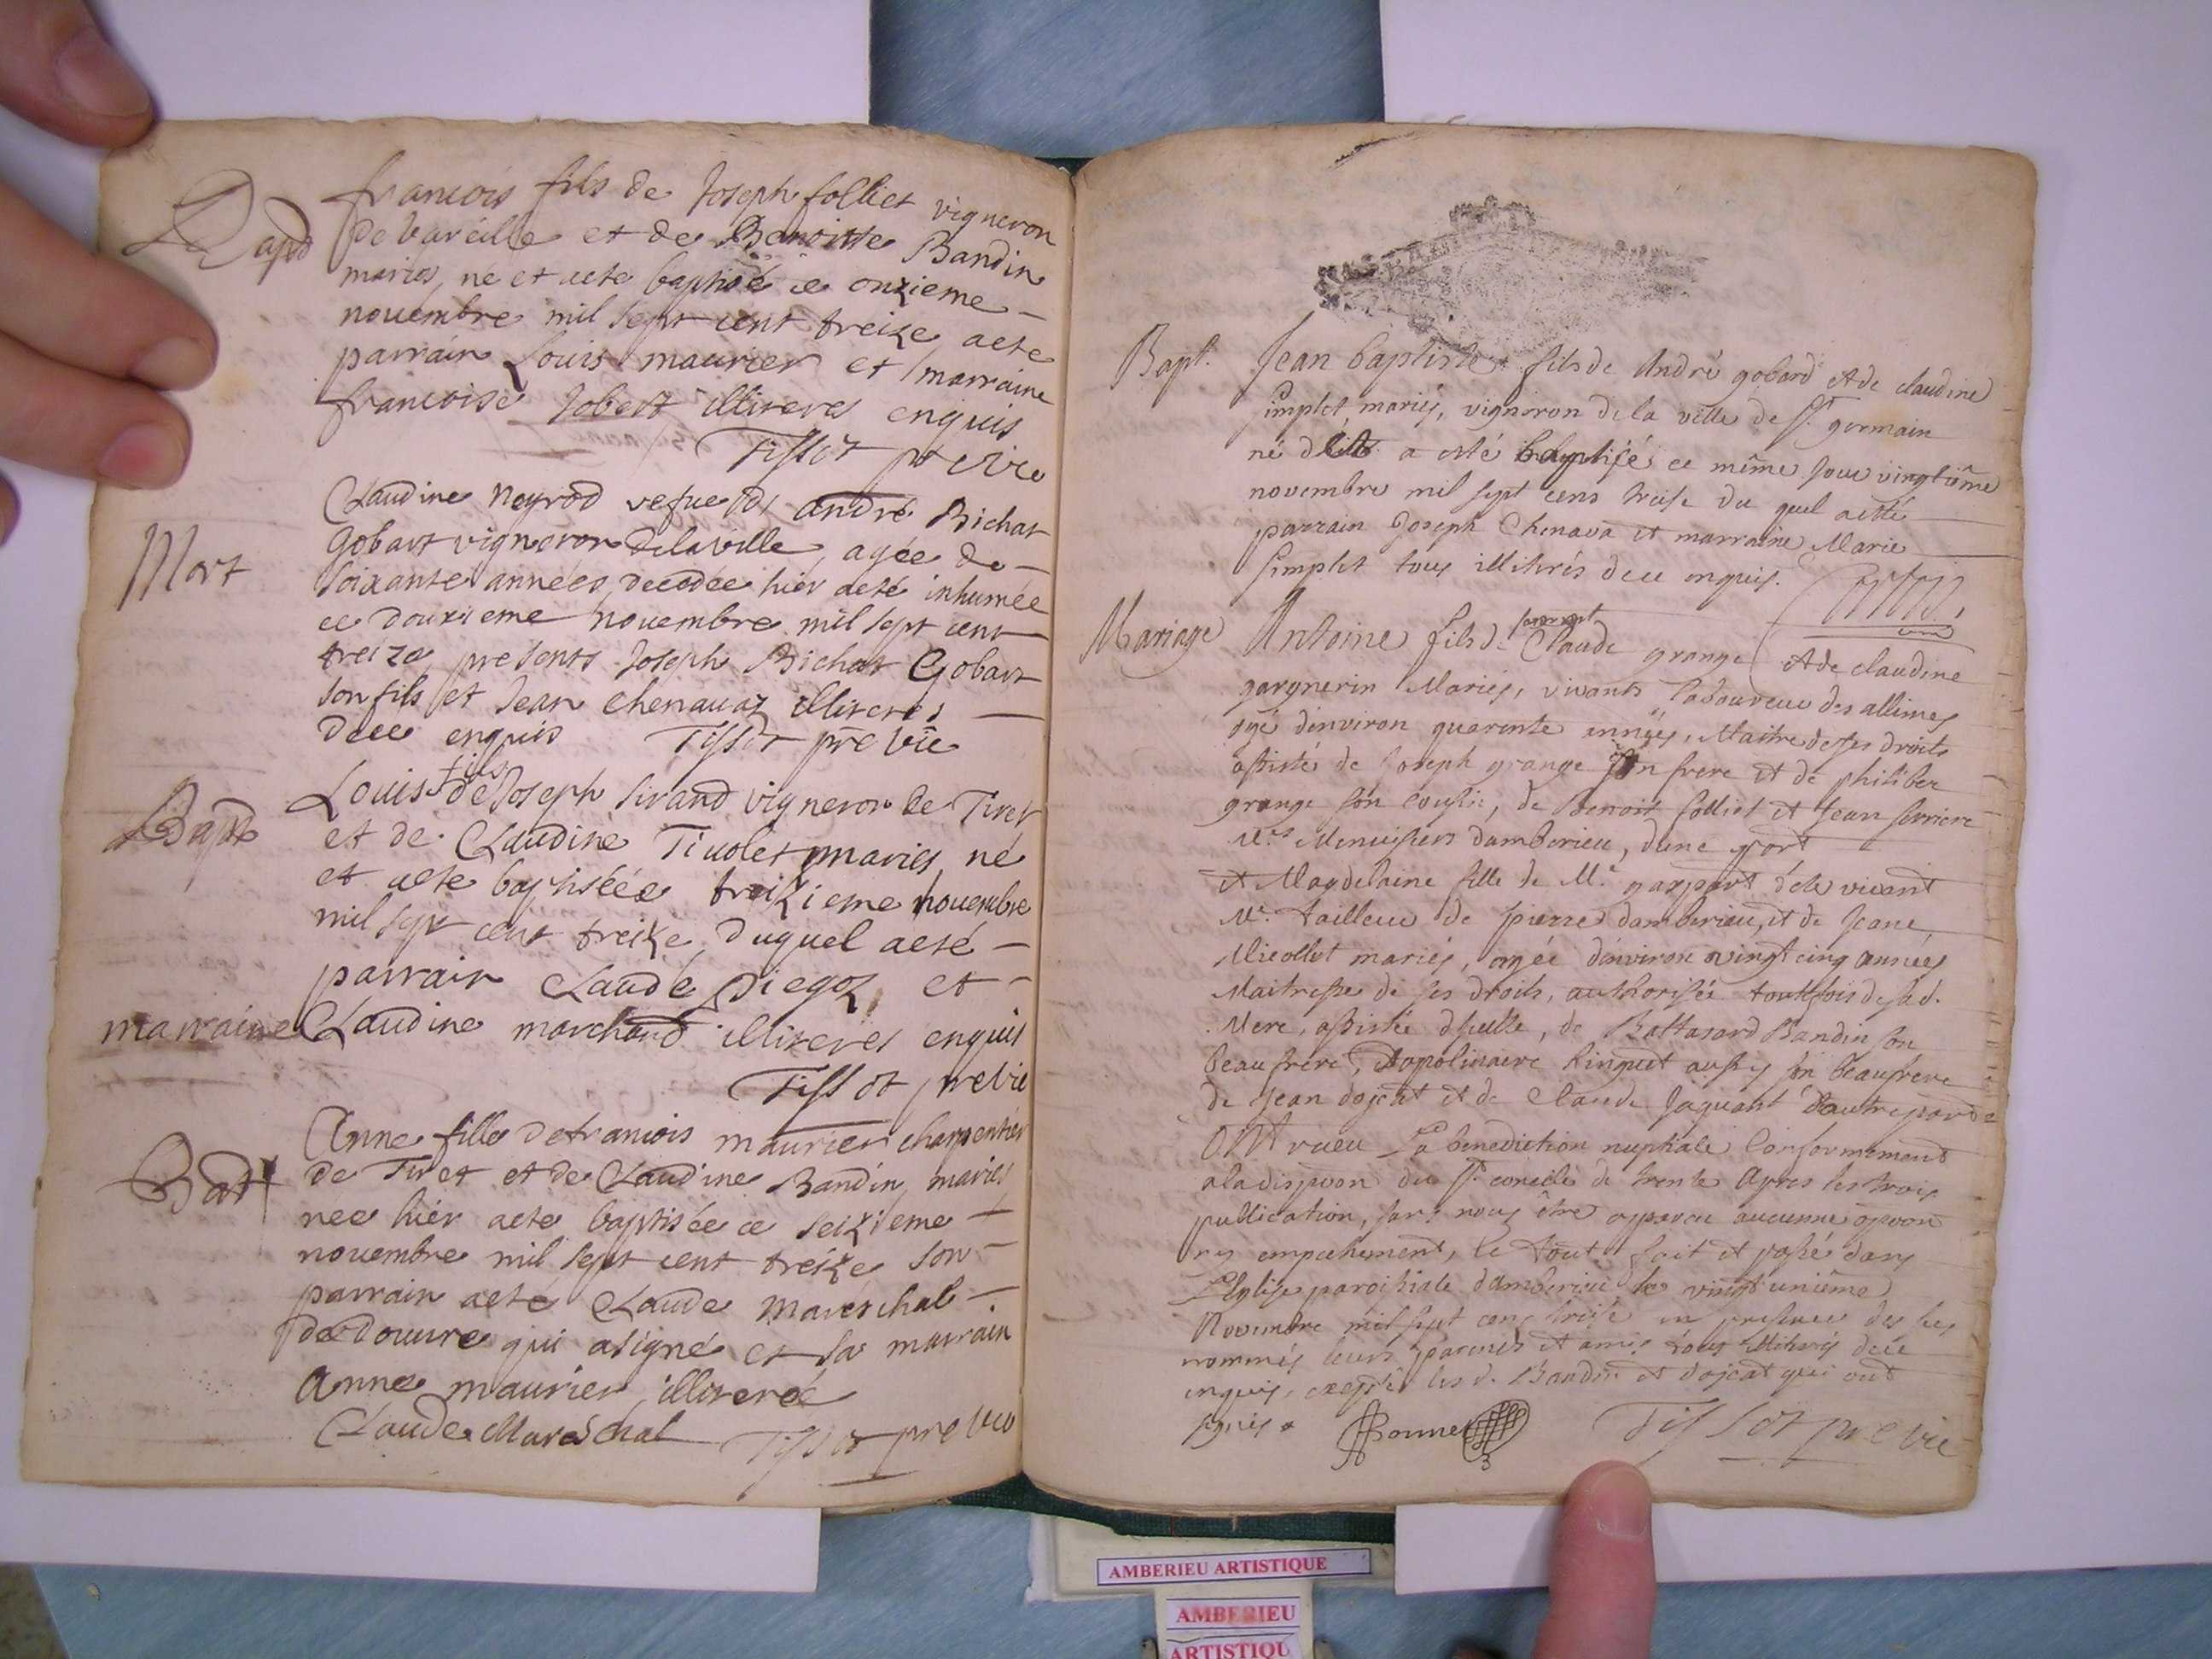 Bapt
francois fils de Joseph folliet vigneron
de Vareille et de Benoitte Bandin
maries, né et aeté baptisé ce onzieme
novembre mil sept cent treize aeté
parrain Louis maurier et marraine
francoise Jobert illiteres enquis
Tissot previc
Mort
Claudine Neyrod vefue de andré Bichat
Gobart vigneron delaville, agée de
soixante années, decedée hier aeté inhumée
ce douzieme novembre mil sept cent
treize, presents Joseph Bichat Gobart
son fils et Jean chenavaz illiteres
dece enquis Tissot pre vic
Bapt
Louis fils de Joseph sirand vigneron de Tiret
et de Claudine Tivolet maries né
et aeté baptisé ce treizieme novembre
mil sept cent treize, duquel aeté
parrain Claude Diegoz et
marraine Claudine marchand illiteres enquis
Tissot previc
Bapt
Anne fille de francois maurier charpentier
de Tiret et de Claudine Bandin, maries
née hier aeté baptisée ce seizieme
novembre mil sept cent treize son
parrain aeté Claude mareschal
de douvre qui asigné et sa marrain
Anne maurier illiterée
Claude Mareschal Tissot pre vic
Bapt. Jean baptiste fils de André gobard et de claudine
simplet, mariés, vigneron de la ville de St. germain
né a esté baptisé ce même jour vingtiême
novembre mil sept cens treise du quel aesté
parrain Joseph Chenava et marraine Marie
simplet tous illiterés dece enquis.
Mariage Antoine fils de Claude grange et de claudine
gargnerin Mariés, vivants laboureur des allimes
agé denviron quarente années, Maitre de ses droits
assisté de Joseph grange son frere et de philiber
grange son cousin, de benoit folliet et Jean ferriere
Mes. Menuisiers damberieu, dune part
et Magdelaine fille de Me. gaspart dele vivant
Me. tailleur de pierre damberieu, et de Jeane
Micollet mariés, agée denviron vingt cinq années
Maitresse de ses droits, authorisée touttefois de sad.
Mere, assistée dicelle, de Baltasard Bandin son
beau frere, Apolinaire Ringuet aussy son beaufrere
de Jean dojeat et de Claude Jaquant dautre parde
Ont receu La benediction nuptiale Conformement
aladispoon du St. concile de trente Apres les trois
publication, sans nous être appareu aucunne opoon
ny empechement, le tout fait et passé dans
LEglise paroissiale damberieu le vingt uniême
Novembre mil sept cens treise en presence des ses
nommés leurs parents et amis tous illiterés dece
enquis, excepté les d. Bandin et dojeat qui ont
signés
Bonnet Tissot pre vic
AMBERIEU ARTISTIQUE
AMBERIEU
ARTISTIQU